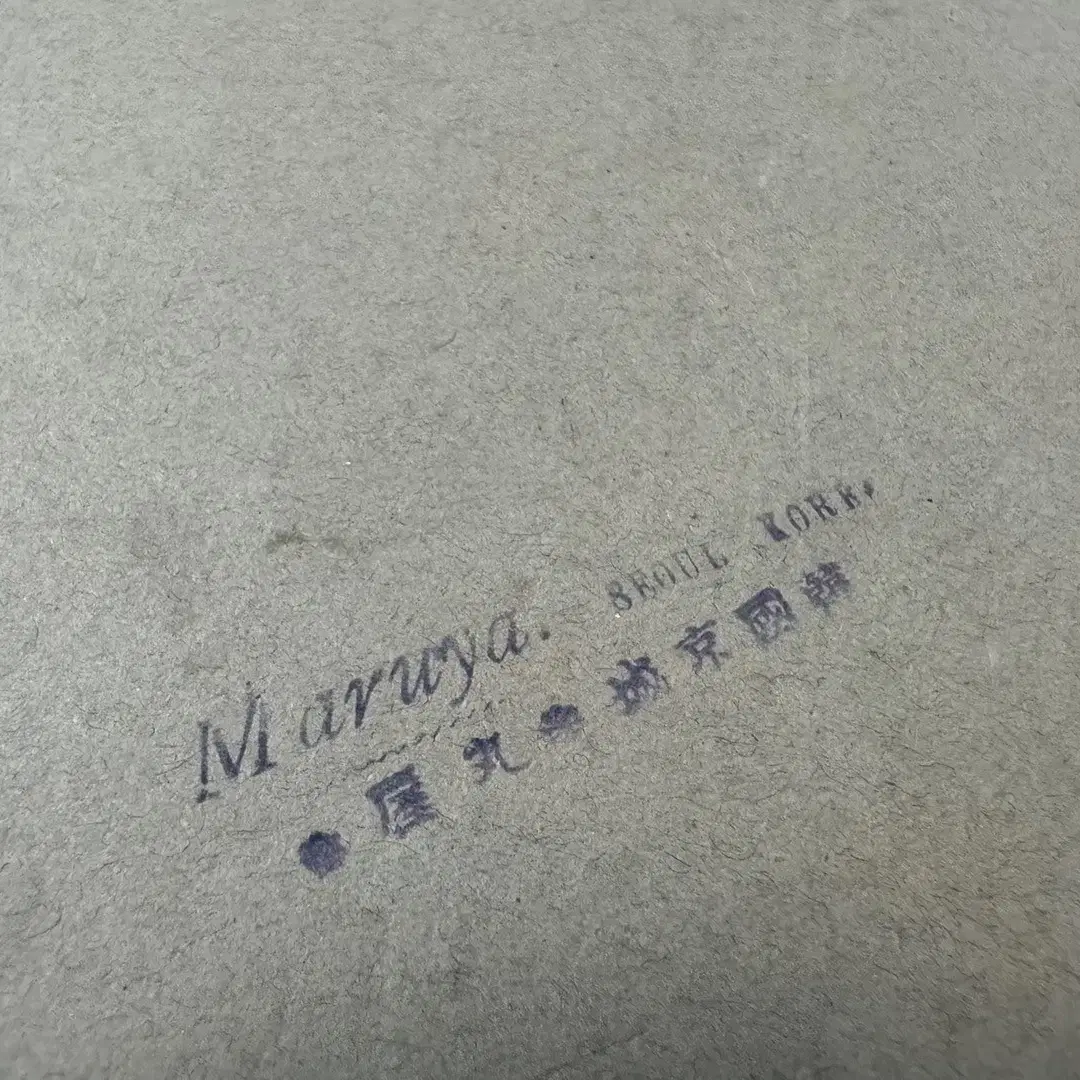 Maruya. SEOUL KORE,
韓國京城●丸屋●